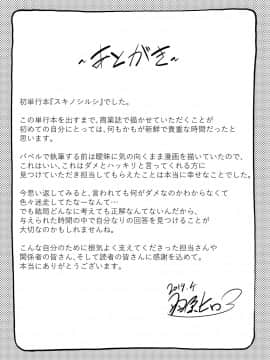 ～あとがき～
初単行本『スキノシルシ』でした。
この単行本を出すまで、商業誌で描かせていただくことが
初めての自分にとっては、何もかもが新鮮で貴重な時間だったと
思います。
バベルで執筆する前は曖昧に気の向くまま漫画を描いていたので、
これはいい、これはダメとハッキリと言ってくれる方に
見つけていただき担当してもらえたことは本当に幸せなことでした。
今思い返してみると、言われても何がダメなのかわからなくて
色々迷走してたな…なんて…
でも結局どんなに考えても正解なんてないんだから、
与えられた時間の中で自分なりの回答を見つけることが
大切なのかもしれませんね。
こんな自分のために根気よく支えてくださった担当さんや
関係者の皆さん、そして読者の皆さんに感謝を込めて。
本当にありがとうございます。
2019.4